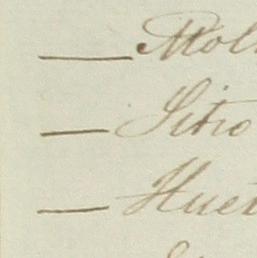 — Mol
— Sitio
— Huet